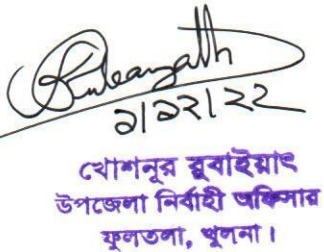 Rubaeyath
১/১২/২২
খোশনূর রুবাইয়াৎ
উপজেলা নির্বাহী অফিসার
ফুলতলা, খুলনা।